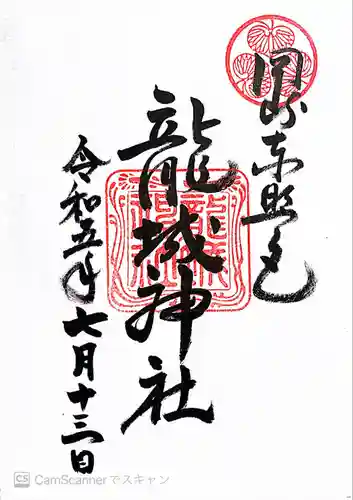 岡崎東照宮
龍城神社
令和五年七月十三日
龍城神社
CS CamScannerでスキャン